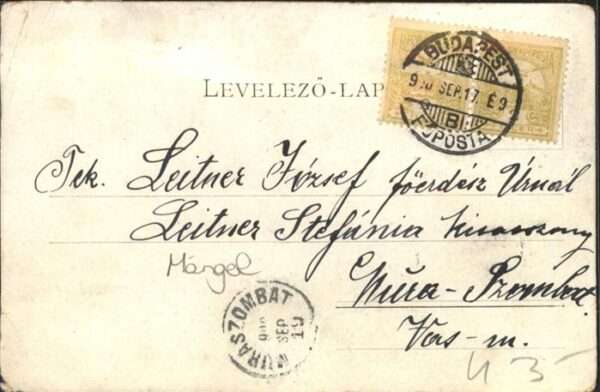 LEVELEZŐ-LAP
BUDAPEST
SEP. 17. É9
FŐPOSTA
Tek. Leitner József főerdész Úrnál
Leitner Stefánia kisasszony
Mura-Szombat
Vas-m.
Margel
MURASZOMBAT
SEP 19
43